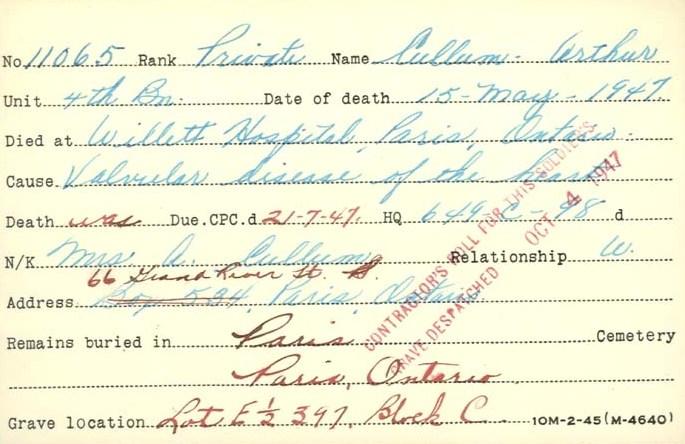 No. 11065 Rank Private Name Cullum - Arthur
Unit 4th Bn. Date of death 15-May-1947
Died at Willett Hospital, Paris, Ontario.
Cause Valvular disease of the heart
Death was Due. CPC.d 21-7-47. HQ 649-C-98 d
N/K Mrs A. Cullum Relationship W.
66 Grand River St. S.
Address Box 534, Paris, Ontario
Remains buried in Paris Cemetery
Paris, Ontario.
Grave location Lot E ½ 397, Block C. 10M-2-45 (M-4640)
CONTRACTOR'S ROLL FOR THIS SOLDIER'S
GRAVE DESPATCHED OCT 4 1947